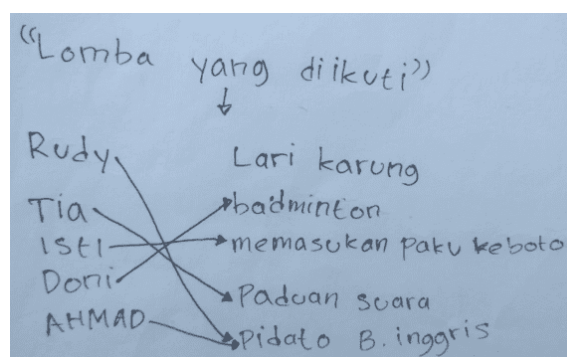 "Lomba yang diikuti"
Rudy
Tia
Isti
Doni
AHMAD
Lari karung
badminton
memasukan paku keboto
Paduan suara
Pidato B. inggris